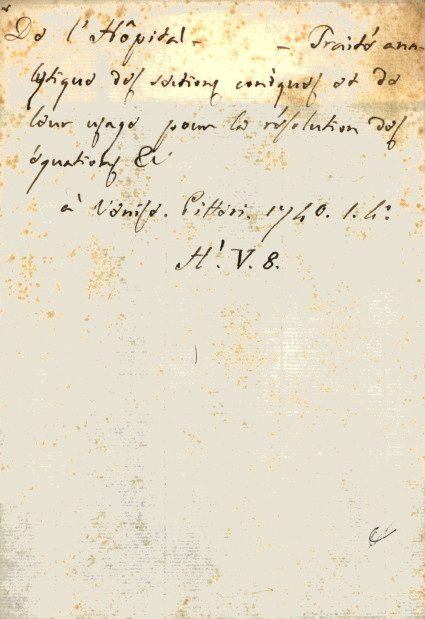 De l'Hôpital - - Traité ana-
lytique des sections coniques et de
leur usage pour la résolution des
équations &c
à Venise. Pittéri. 1740. 1. 4°
H'. V. 8.